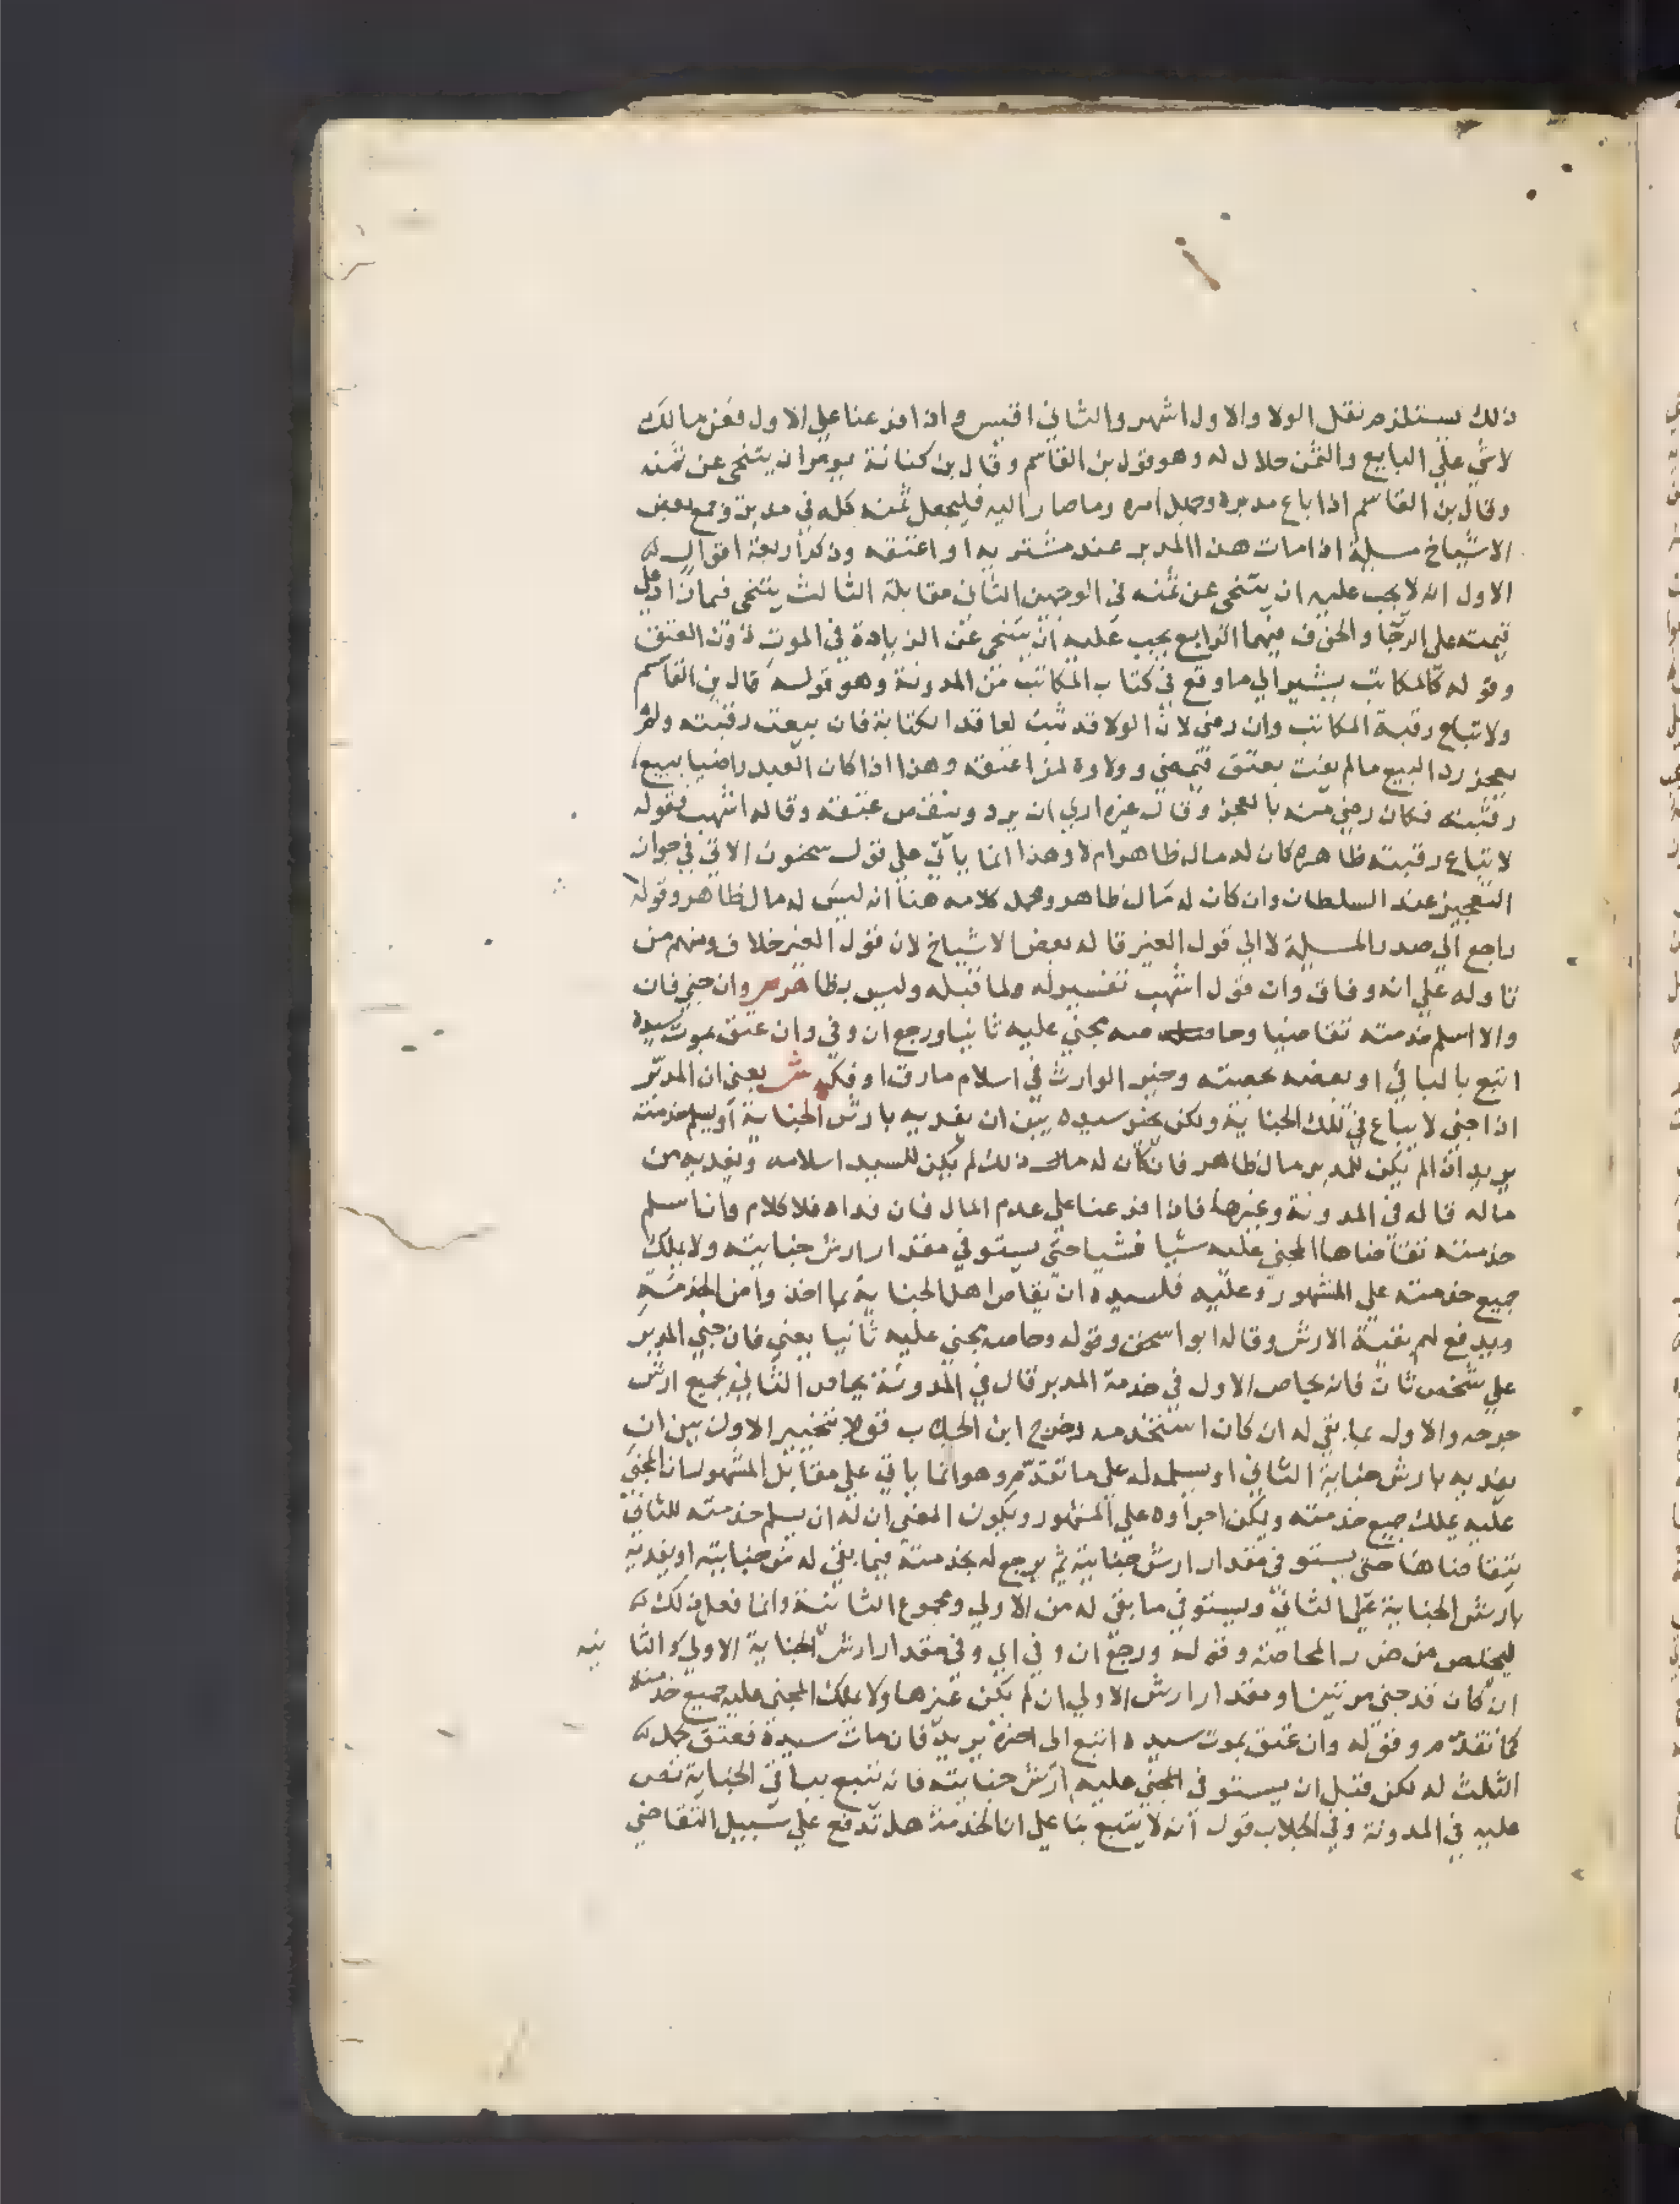 ذلك يستلزم نقل الولا والاول اشهر والثاني اقيس واذا فرعنا علي الاول فعن مالك
لاشي علي البايع والثمن حلال له وهو قول بن القاسم وقال بن كنانة يومر ان يتنحي عن ثمنه
وقال بن القاسم اذا باع مدبره وجهل امره وما صار اليه فليجعل ثمنه كله في مدبر وجمع بعض
الاشياخ مسلة اذا مات هذا المدبر عند مشتريه او اعتقه وذكر اربعة اقوال
الاول انه لا يجب عليه ان يتنحي عن ثمنه في الوجهين الثاني مقابله الثالث يتنحي فيما زاد علي
قيمته علي الرجا والخوف فيهما الرابع يجب عليه ان يتنحي عن الزيادة في الموت دون العتق
وقوله كالمكاتب يشير الي ما وقع في كتاب المكاتب من المدونة وهو قوله قال بن القاسم
ولا تباع رقبة المكاتب وان رضي لان الولا قد ثبت لعاقد الكتابة فان بيعت رقبته ولم
يعجز رد البيع مالم يفت بعتق فيمضي وولاوه لمن اعتقه وهذا اذا كان العبد راضيا ببيع
رقبته فكان رضي منه بالعجز وقال غيره اري ان يرد وينقض عتقه وقاله اشهب فقوله
لا تباع رقبته ظاهره كان له مال ظاهر ام لا وهذا انما ياتي علي قول سحنون الاتي في جواز
التعجيز عند السلطان وان كان له مال ظاهر ومحمل كلامه هنا انه ليس له مال ظاهر وقوله
راجع الي صدر المسلة لا الي قول الغير قاله بعض الاشياخ لان قول الغير خلاف ومنهم من
تاوله علي انه وفاق وان قول اشهب تفسير له ولما قبله وليس بظاهر ص وان جني فان
والا اسلم خدمته تقاضيا وحاصه مجني عليه ثانيا ورجع ان وفي وان عتق بموت سيده
اتبع بالباقي او بعضه بحصته وخير الوارث في اسلام مارق او فكه ش يعني ان المدبر
اذا جني لا يباع في تلك الجناية ولكن يخير سيده بين ان يفديه بارش الجناية او يسلم خدمته
يريد اذا لم يكن للمدبر مال ظاهر فان كان له مال ذلك لم يكن للسيد اسلامه ويفديه من
ماله قاله في المدونة وغيرها فاذا فرعنا علي عدم المال فان فداه فلا كلام وان اسلم
خدمته تقاضاها المجني عليه شيا فشيا حتي يستوفي مقدار ارش جنايته ولا يملك
جميع خدمته علي المشهور وعليه فلسيده ان يقاص اهل الجناية بما اخذوا من الخدمة
ويدفع لهم بقية الارش وقاله ابو اسحق وقوله وحاصه مجني عليه ثانيا يعني فان جني المدبر
علي شخص ثان فانه يحاص الاول في خدمة المدبر قال في المدونة يحاص الثاني بجميع ارش
جرحه والاول بما بقي له ان كان استخدمه وخرج ابن الجلاب قولا بتخيير الاول بين ان
يفديه بارش جناية الثاني او يسلمه له علي ما تقدم وهو انما ياتي علي مقابل المشهور ان المجني
عليه يملك جميع خدمته ويمكن اجراوه علي المشهور ويكون المعني ان له ان يسلم خدمته للثاني
يتقاضاها حتي يستوفي مقدار ارش جنايته ثم يرجع له بخدمته فيما بقي له من جنايته او يفديه
بارش الجناية علي الثاني ويستوفي ما بقي له من الاولي ومجموع الثانية وانما فعل ذلك
ليخلص من ضرر المحاصة وقوله ورجع ان وفي اي وفي مقدار ارش الجناية الاولي والثانيه
ان كان قد جني مرتين او مقدار ارش الاولي ان لم يكن غيرها ولا يملك المجني عليه جميع خدمته
كما تقدم وقوله وان عتق بموت سيده اتبع الي اخره يريد فان مات سيده فعتق بحمل
الثلث له لكن قبل ان يستوفي المجني عليه ارش جنايته فانه يتبع بباقي الجناية نص
عليه في المدونة وفي الجلاب قول انه لا يتبع بنا علي ان الخدمة هل تدفع علي سبيل التقاضي